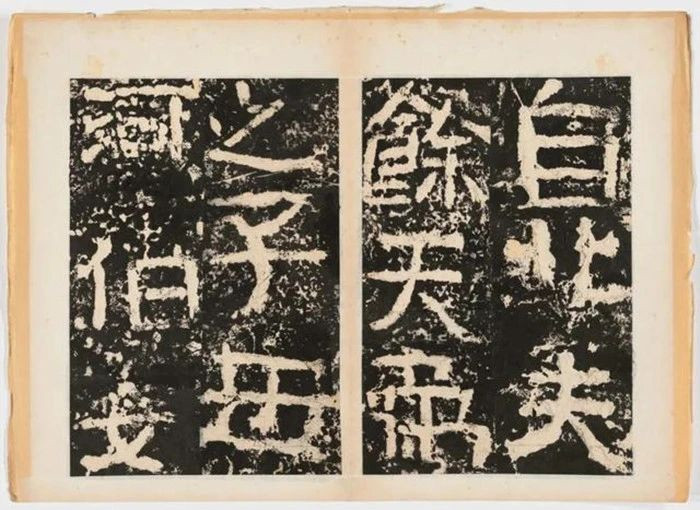 自北夫
餘天帝
之子母
河伯女